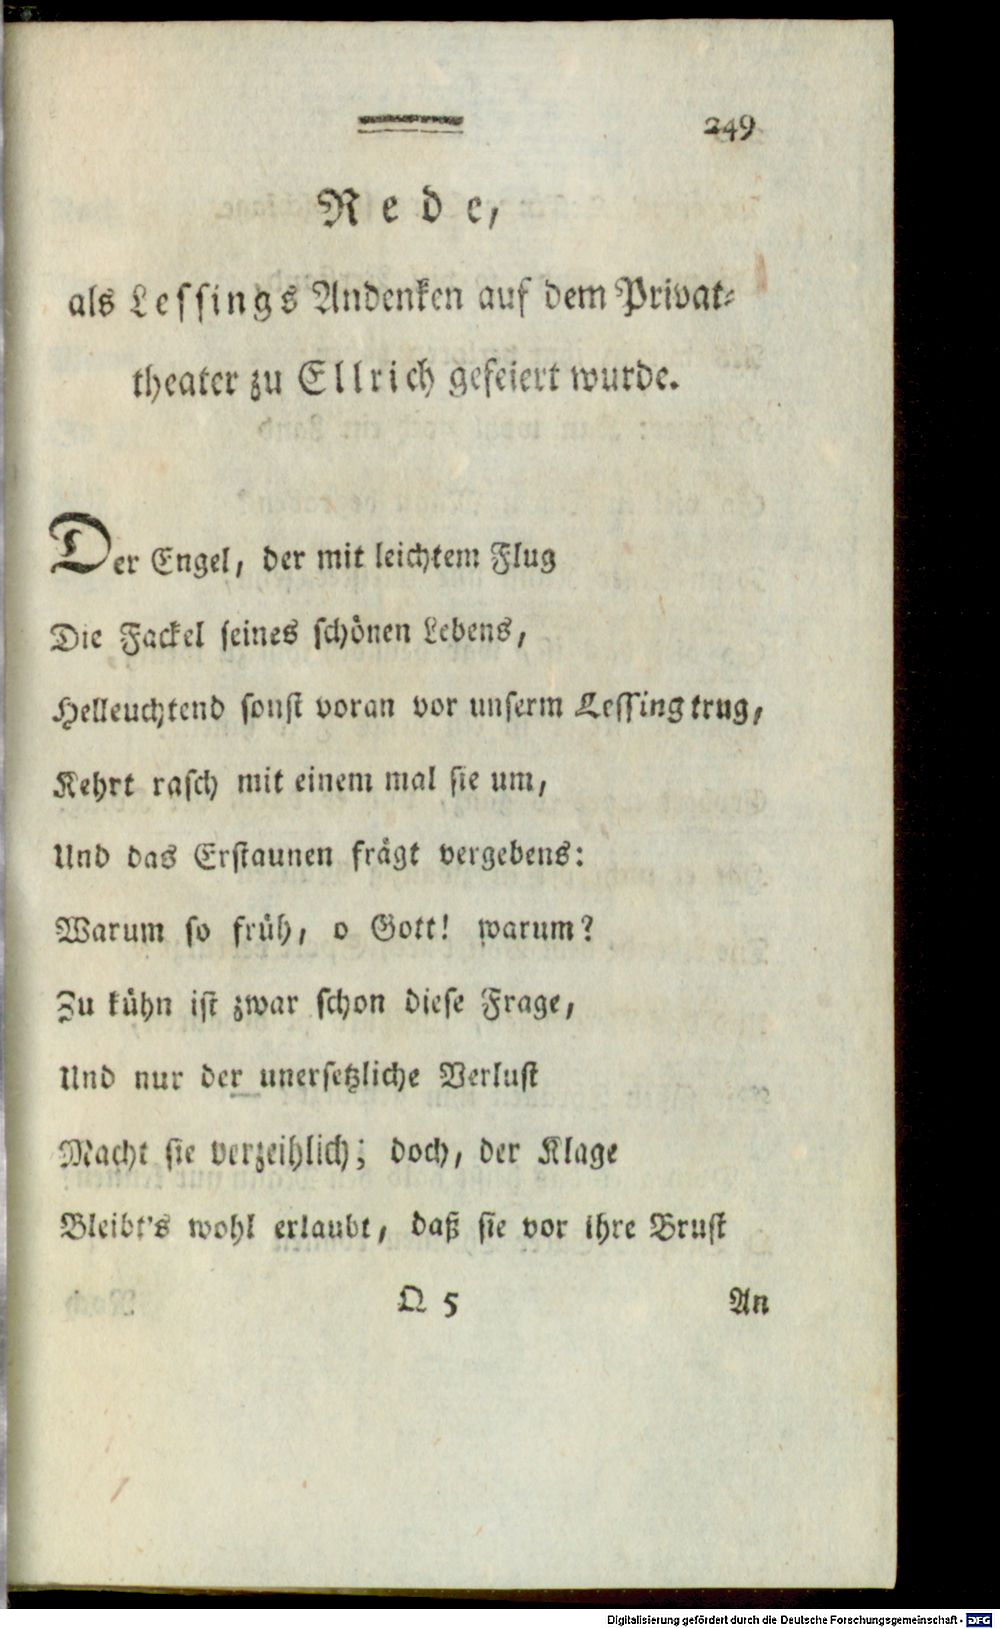 249
Rede,
als Lessings Andenken auf dem Privat-
theater zu Ellrich gefeiert wurde.
Der Engel, der mit leichtem Flug
Die Fackel seines schönen Lebens,
Helleuchtend sonst voran vor unserm Lessing trug,
Kehrt rasch mit einem mal sie um,
Und das Erstaunen frägt vergebens:
Warum so früh, o Gott! warum?
Zu kühn ist zwar schon diese Frage,
Und nur der unersetzliche Verlust
Macht sie verzeihlich; doch, der Klage
Bleibt's wohl erlaubt, daß sie vor ihre Brust
Q 5 An
Digitalisierung gefördert durch die Deutsche Forschungsgemeinschaft - DFG